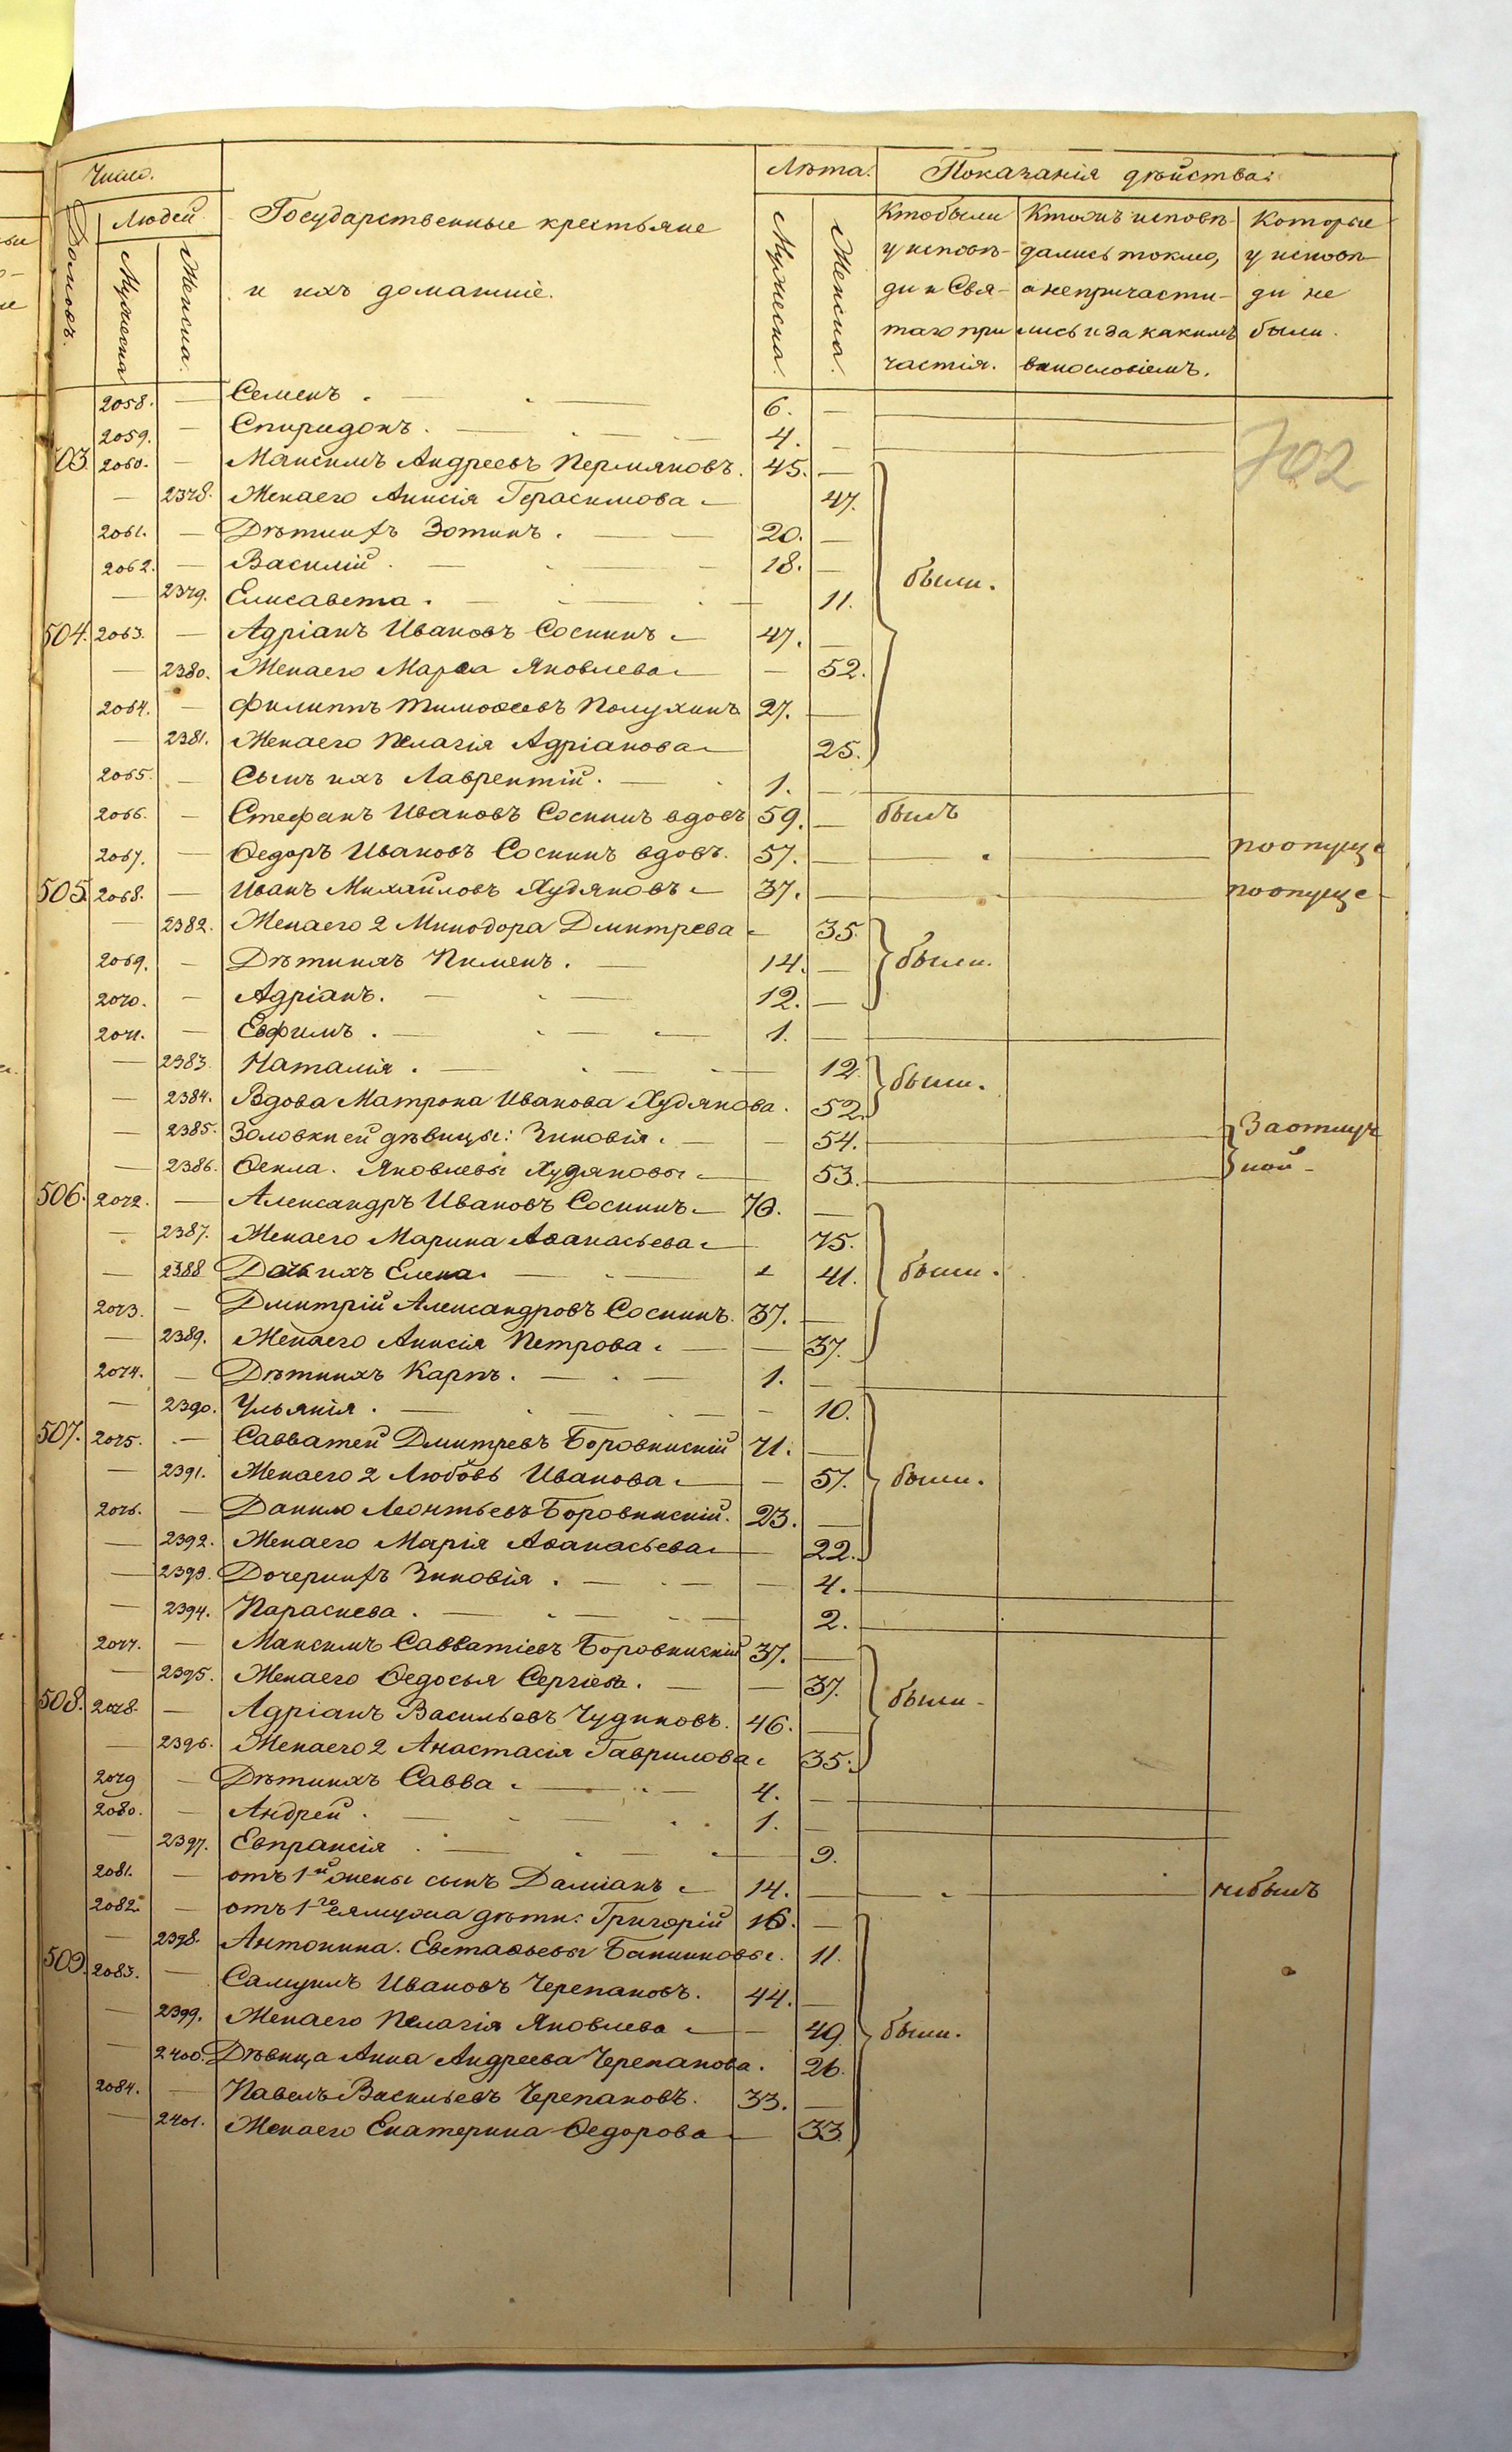 Число.
Лѣта.
Показанія дѣйства:
Домовъ.
Людей
Мужеска
Женска.
Государственные крестьяне
и ихъ домашніе.
Мужеска.
Женска.
Кто были
у исповѣ-
ди и Свя-
таго при
частія.
Кто жъ исповѣ-
дались токмо,
а непричасти-
лись и за какимъ
винословіемъ.
Которые
у исповѣ-
ди не
были.
702
2058. — Семенъ. — 6. —
2059. — Спиридонъ. — 4. —
503. 2060. — Максимъ Андреевъ Пермяковъ. 45. —
— 2378. Жена его Анисія Герасимова — 47.
2061. — Дѣти ихъ Зотикъ. — 20. —
2062. — Василій. — 18. — были.
— 2379. Елисавета. — 11.
504. 2063. — Адріанъ Ивановъ Соснинъ — 47. —
— 2380. Жена его Марѳа Яковлева — 52.
2064. — Филиппъ Тимоѳеевъ Полухинъ 27. —
— 2381. Жена его Пелагія Адріанова — 25.
2065. — Сынъ ихъ Лаврентій. — 1. —
2066. — Стефанъ Ивановъ Соснинъ вдовъ 59. — былъ
2067. — Ѳедоръ Ивановъ Соснинъ вдовъ. 57. — по опуще
505. 2068. — Иванъ Михайловъ Худяковъ — 37. — по опуще-
— 2382. Жена его 2 Минодора Дмитрева — 35.
2069. — Дѣти ихъ Пименъ. — 14. — были.
2070. — Адріанъ. — 12. —
2071. — Евфимъ. — 1. —
— 2383. Наталія. — 12.
— 2384. Вдова Матрона Иванова Худякова. 52. были.
— 2385. Золовки ей дѣвицы: Зиновія. — 54. За отлуч
— 2386. Ѳекла. Яковлевы Худяковы — 53. кой-
506. 2072. — Александръ Ивановъ Соснинъ — 70. —
— 2387. Жена его Марина Аѳанасьева — 75.
— 2388 Дочь ихъ Елена. — 41. были.
2073. — Дмитрій Александровъ Соснинъ. 37. —
— 2389. Жена его Анисія Петрова. — 37.
2074. — Дѣти ихъ Карпъ. — 1. —
— 2390. Ульянія. — 10.
507. 2075. — Савватей Дмитревъ Боровинскій 71. —
— 2391. Жена его 2 Любовь Иванова — 57. были.
2076. — Данило Леонтьевъ Боровинскій. 23. —
— 2392. Жена его Марія Аѳанасьева — 22.
— 2393. Дочери ихъ Зиновія. — 4.
— 2394. Параскева. — 2.
2077. — Максимъ Савватіевъ Боровинскій 37. —
— 2395. Жена его Ѳедосья Сергіева. — 37.
508. 2078. — Адріанъ Васильевъ Чудиновъ. 46. — были-
— 2396. Жена его 2 Анастасія Гаврилова 35.
2079 — Дѣти ихъ Савва. — 4. —
2080. — Андрей. — 1. —
— 2397. Евпраксія — 9.
2081. — отъ 1й жены сынъ Даміанъ — 14. — небылъ
2082. — отъ 1го ея мужа дѣти: Григорій 16. —
— 2398. Антонина. Евстаѳьевы Баниковы. 11.
509. 2083. — Самуилъ Ивановъ Черепановъ. 44. —
— 2399. Жена его Пелагія Яковлева — 49. были.
— 2400. Дѣвица Анна Андреева Черепанова. 26.
2084. — Павелъ Васильевъ Черепановъ. 33. —
— 2401. Жена его Екатерина Ѳедорова — 33.